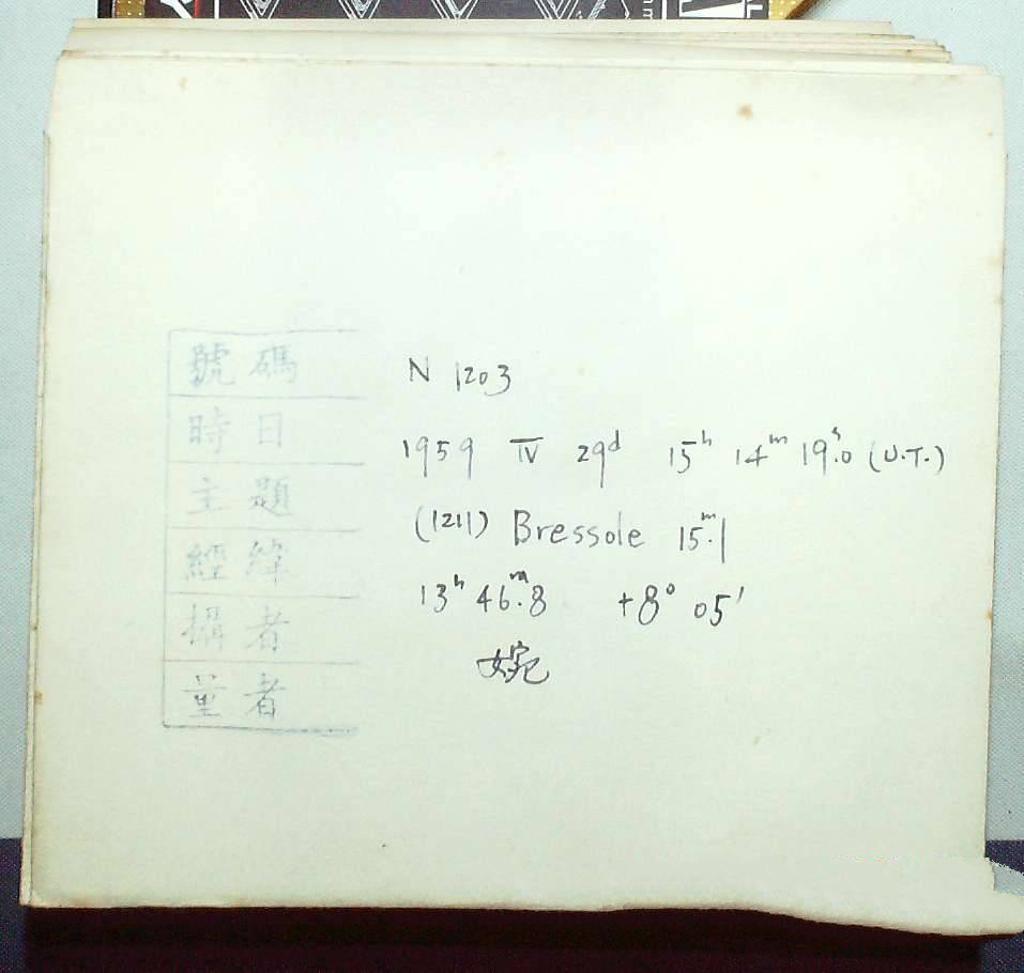 號碼 N 1203
時日 1959 IV 29d 15h 14m 19s.0 (U.T.)
主題 (1211) Bressole 15m.1
經緯 13h 46m.8 +8° 05'
攝者 婉
量者